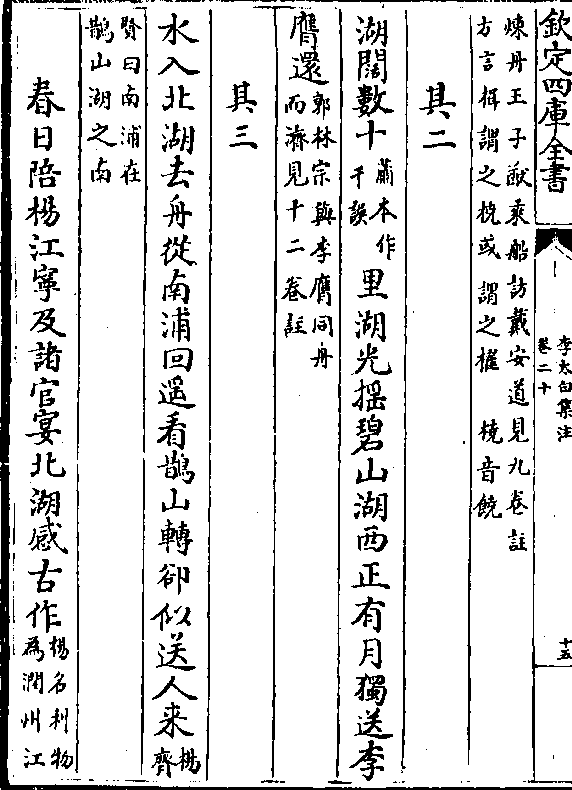 欽定四庫全書
李太白集注
卷二十
十五
煉丹王子猷乘船訪戴安道見九卷註
方言楫謂之橈或謂之櫂　橈音饒
其二
湖闊數十蕭本作千誤里湖光揺碧山湖西正有月獨送李
膺還郭林宗與李膺同舟而濟見十二卷註
其三
水入北湖去舟從南浦回遥看鵲山轉卻似送人来楊齊
賢曰南浦在
鵲山湖之南
春日陪楊江寧及諸官宴北湖感古作楊名利物為潤州江